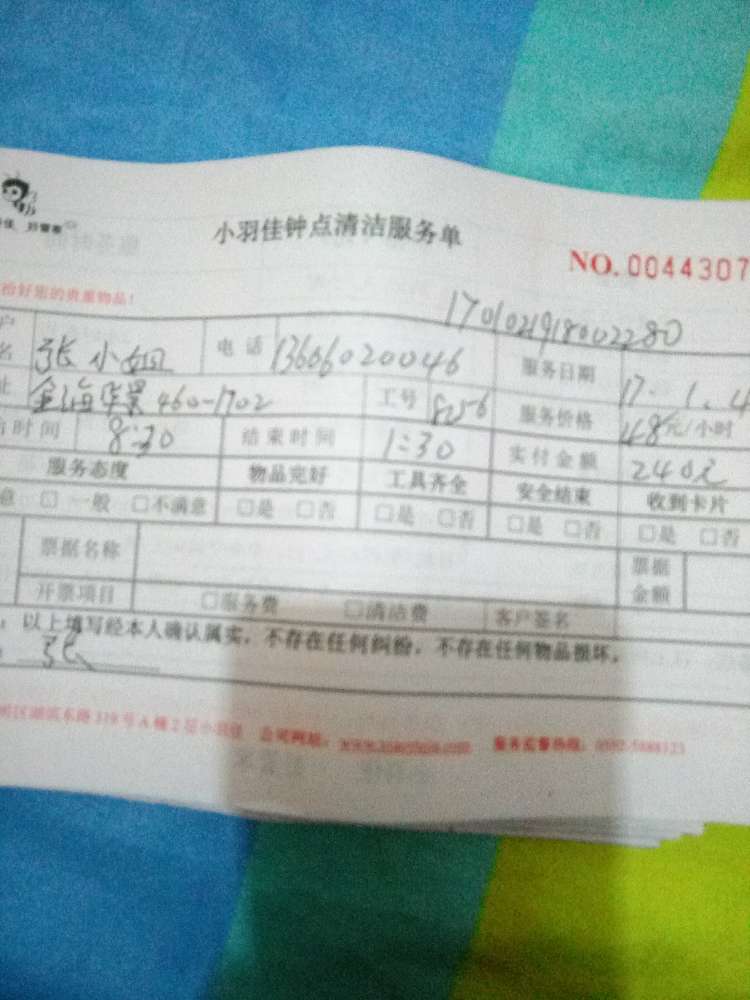 小羽佳钟点清洁服务单
NO.0044307
1701021918002280
张小姐 电话 13606020046 服务日期 17.1.4
金海华景460-1702 工号 8056 服务价格 48元/小时
时间 8:30 结束时间 1:30 实付金额 240元
服务态度 物品完好 工具齐全 安全结束 收到卡片
意 □ 一般 □不满意 □是 □否 □是 □否 □是 □否 □是 □否
票据名称 票据金额
开票项目 □服务费 □清洁费 客户签名
以上填写经本人确认属实，不存在任何纠纷，不存在任何物品损坏。
张